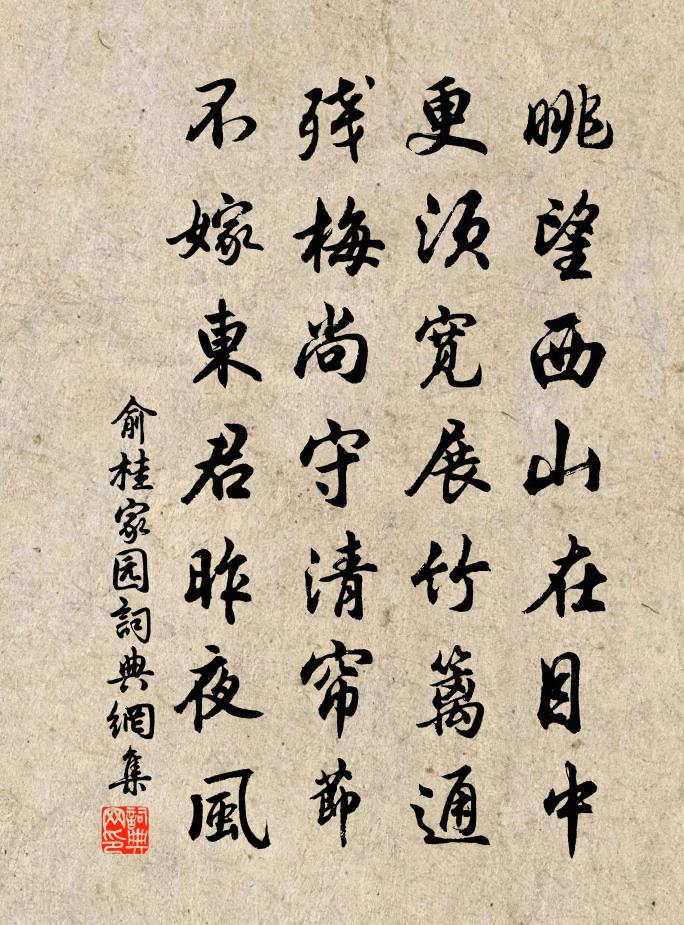 眺望西山在目中
更须宽展竹篱通
残梅尚守清帘節
不嫁東君昨夜風
俞桂家园詞典網集
詞典網印